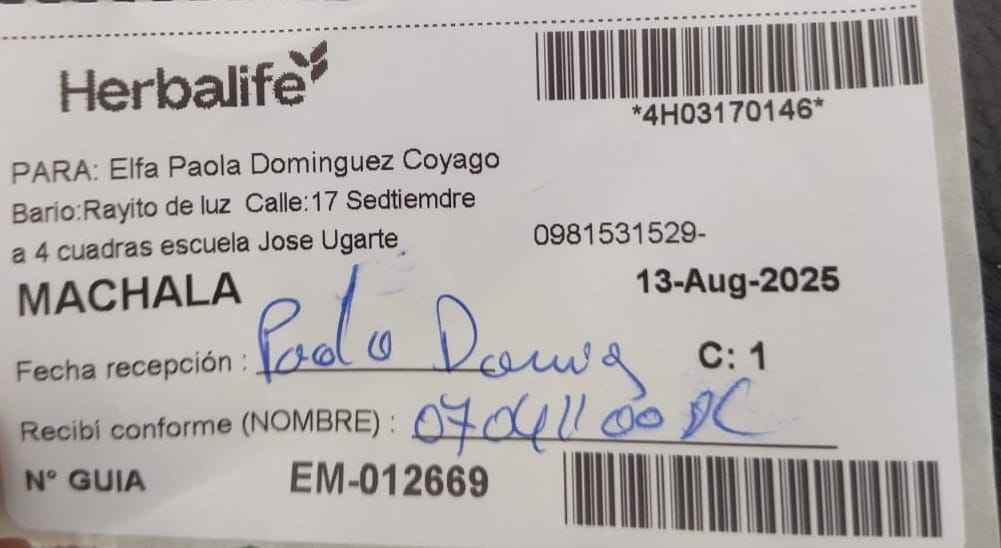 Herbalife
*4H03170146*
PARA: Elfa Paola Dominguez Coyago
Bario:Rayito de luz Calle:17 Sedtiemdre
a 4 cuadras escuela Jose Ugarte 0981531529-
MACHALA 13-Aug-2025
Fecha recepción : Paola C: 1
Recibí conforme (NOMBRE) :
N° GUIA EM-012669